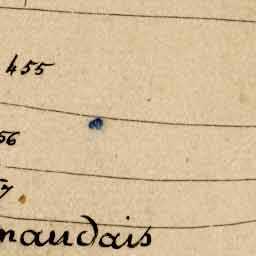 455
56
7
naudais